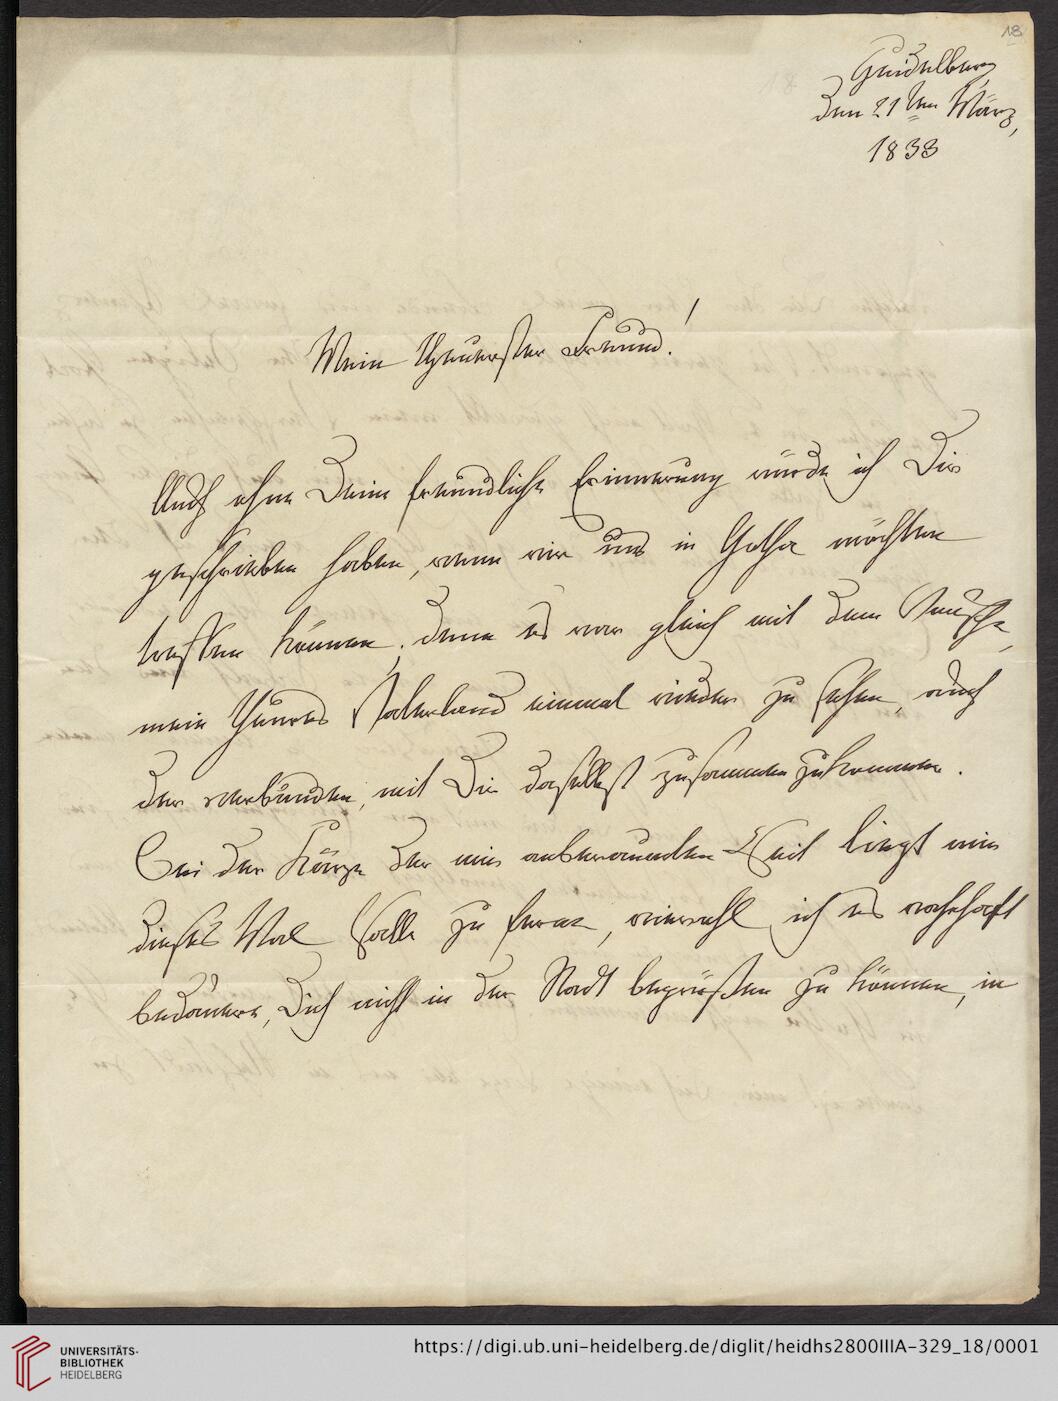 18
Heidelberg
den 21ten März,
1838
Mein theuerster Freund!
Auch ohne Deine freundliche Erinnerung würde ich Dir
geschrieben haben, wenn wir uns in Gotha möchten
treffen können; denn es war gleich mit dem Wunsche,
mein theures Vaterland einmal wieder zu sehen, auch
der verbunden, mit Dir daselbst zusammen zu kommen.
Bei der Kürze der mir anberaumten Zeit liegt mir
dieses Mal Halle zu ferne, wiewohl ich es wahrhaft
bedauere, Dich nicht in der Stadt begrüßen zu können, in
UNIVERSITÄTS-
BIBLIOTHEK
HEIDELBERG
https://digi.ub.uni-heidelberg.de/diglit/heidhs2800IIIA-329_18/0001